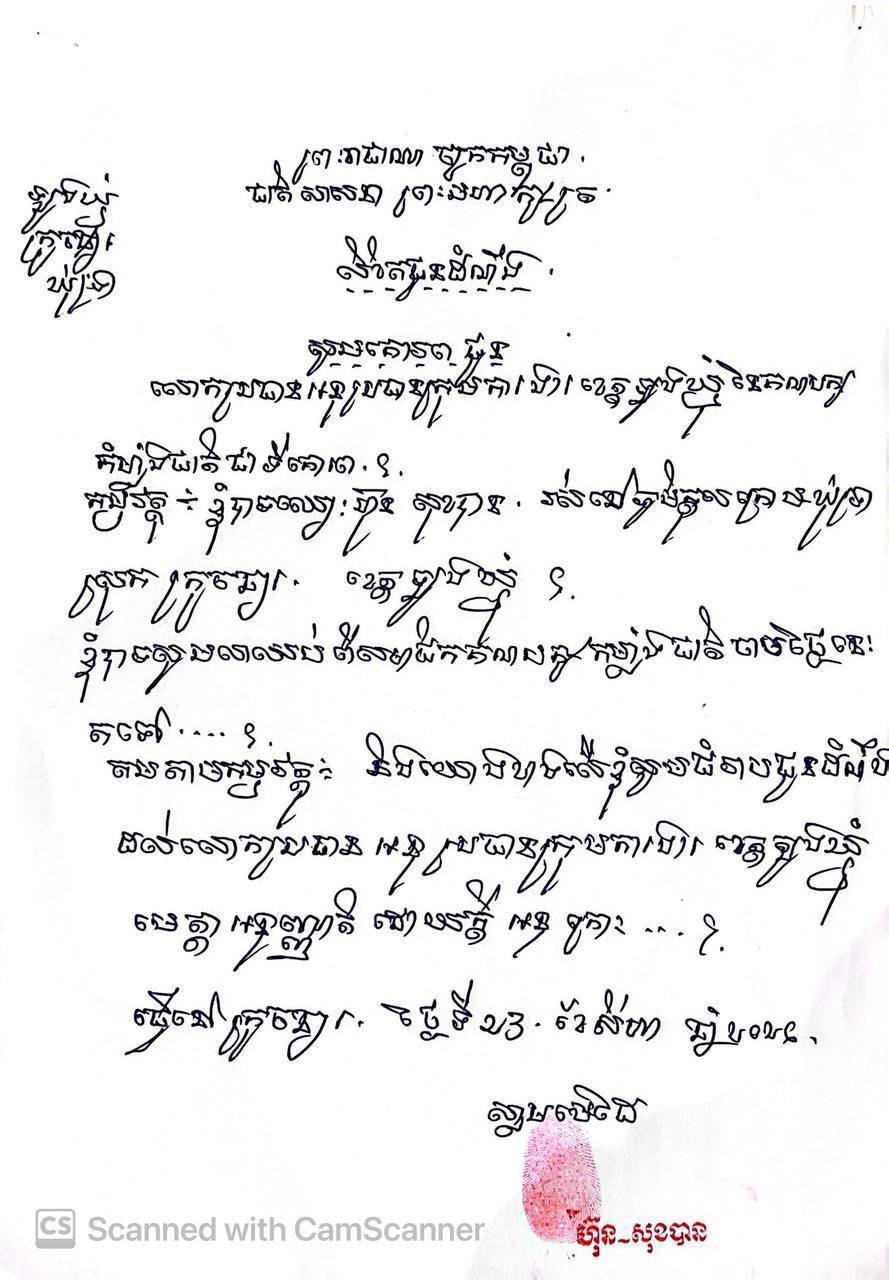 ព្រះរាជាណាចក្រកម្ពុជា.
ជាតិ សាសនា ព្រះមហាក្សត្រ.
ត្បូងឃ្មុំ
ក្រូចឆ្មារ
ឃុំទ្រា
លិខិតជូនដំណឹង.
សូមគោរពជូន
លោកប្រធានអនុប្រធានក្រុមការងារ ខេត្តត្បូងឃ្មុំ នៃគណបក្ស
កំលាំងជាតិ ជាទីគោរព. ៛.
កម្មវត្ថុ ÷ ខ្ញុំបាទឈ្មោះ ហ៊ុន សុខបាន. រស់នៅភូមិ ក្រោម ឃុំទ្រា
ស្រុក ក្រូចឆ្មារ. ខេត្តត្បូងឃ្មុំ ៛.
ខ្ញុំបាទសូមលាឈប់ ពីសមាជិកគណបក្សកម្លាំងជាតិ ចាប់ថ្ងៃនេះ
តទៅ..... ៛.
តបតាមកម្មវត្ថុ÷ និងយោងខាងលើ ខ្ញុំសូមជំរាបជូនដំណឹង
ដល់លោកប្រធាន អនុប្រធានក្រុមការងារ ខេត្តត្បូងឃ្មុំ
មេត្តា អនុញ្ញាតិ ដោយក្តី អនុគ្រោះ .... ៛.
ធ្វើនៅ ក្រូចឆ្មារ. ថ្ងៃទី ២៣. ខែសីហា ឆ្នាំ ២០២៤.
ស្នាមមេដៃ
ហ៊ុន-សុខបាន
CS Scanned with CamScanner